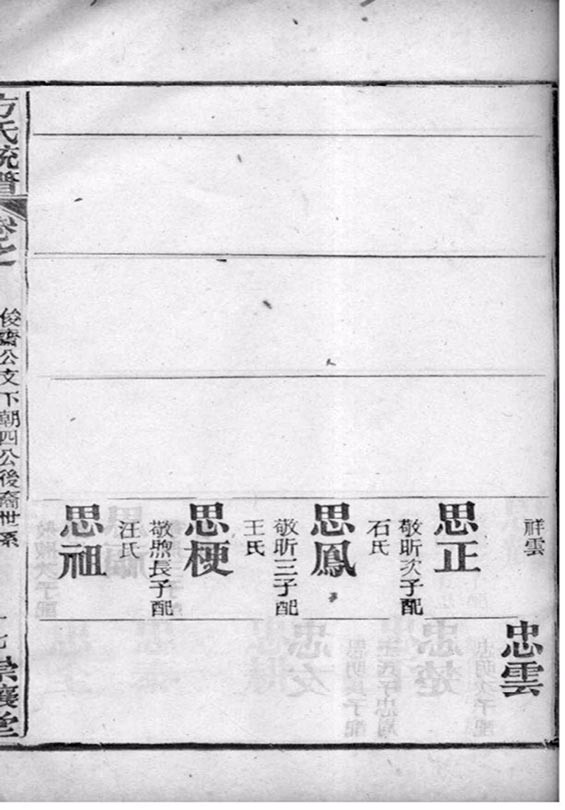 祥雲
思正
敬昕次子配
石氏
思鳳
敬昕三子配
王氏
思梗
敬 長子配
汪氏
思祖
忠雲
方氏統
卷之
俊齋公支下朝四公後裔世系
堂